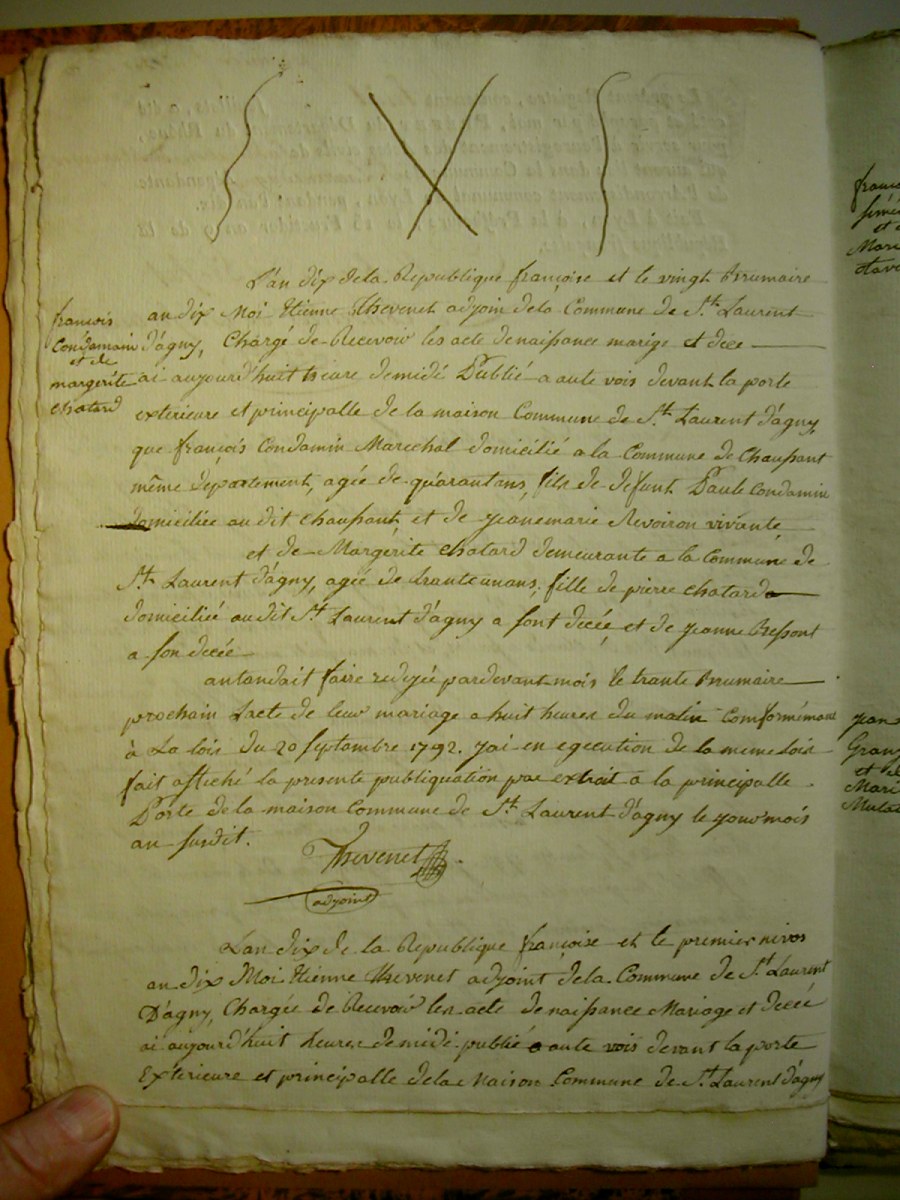 L'an dix de la Republique françoise et le vingt Brumaire
an dix Moi Etienne Thevenet adjoin de la Commune de St. Laurent
d'agny, Chargé de Recevoir les acte de naissance marige et decé
ai aujourd'huit heure de midi Publié a aute vois devant la porte
exterieure et principalle de la maison Commune de St. Laurent d'agny,
que françois Condamin Marechal domicilié a la Commune de Chaussant
même departement, agée de quarantans, fils de defunt Paule Condamin
domiciliée au dit Chaussant, et de jeanemarie Revoiron vivante
et de Margérite chatard demeurante a la Commune de
St. Laurent d'agny, agée de trante unans, fille de pierre chatard
domicilié au dit St. Laurent d'agny a sont decée et de jeanne Bressont
a son decée
antandait faire redijée pardevant mois le trante Brumaire
prochain L'acte de leur mariage a huit heures du matin Comformémant
à La lois du 20 Septambre 1792. j'ai en egecution de la meme lois
fait affiché la presente publiquation par extrait à la principalle
Porte de la maison Commune de St. Laurent d'agny le jour mois
an susdit.
Thevenet
adjoint
françois
Condamain
et de
margerite
chatard
L'an dix de la Republique françoise et le premier nivos
an dix Moi Etienne Thevenet adjoint de la Commune de St Laurent
D'agny, Chargée de Recevoir les acte de naissance Mariage et decéé
ai aujourd'huit heures de midi publié a aute vois devant la porte
Extérieure et principalle de la Maison Commune de St. Laurent d'agny
et
Mari
jean
Granj
et de
Mari